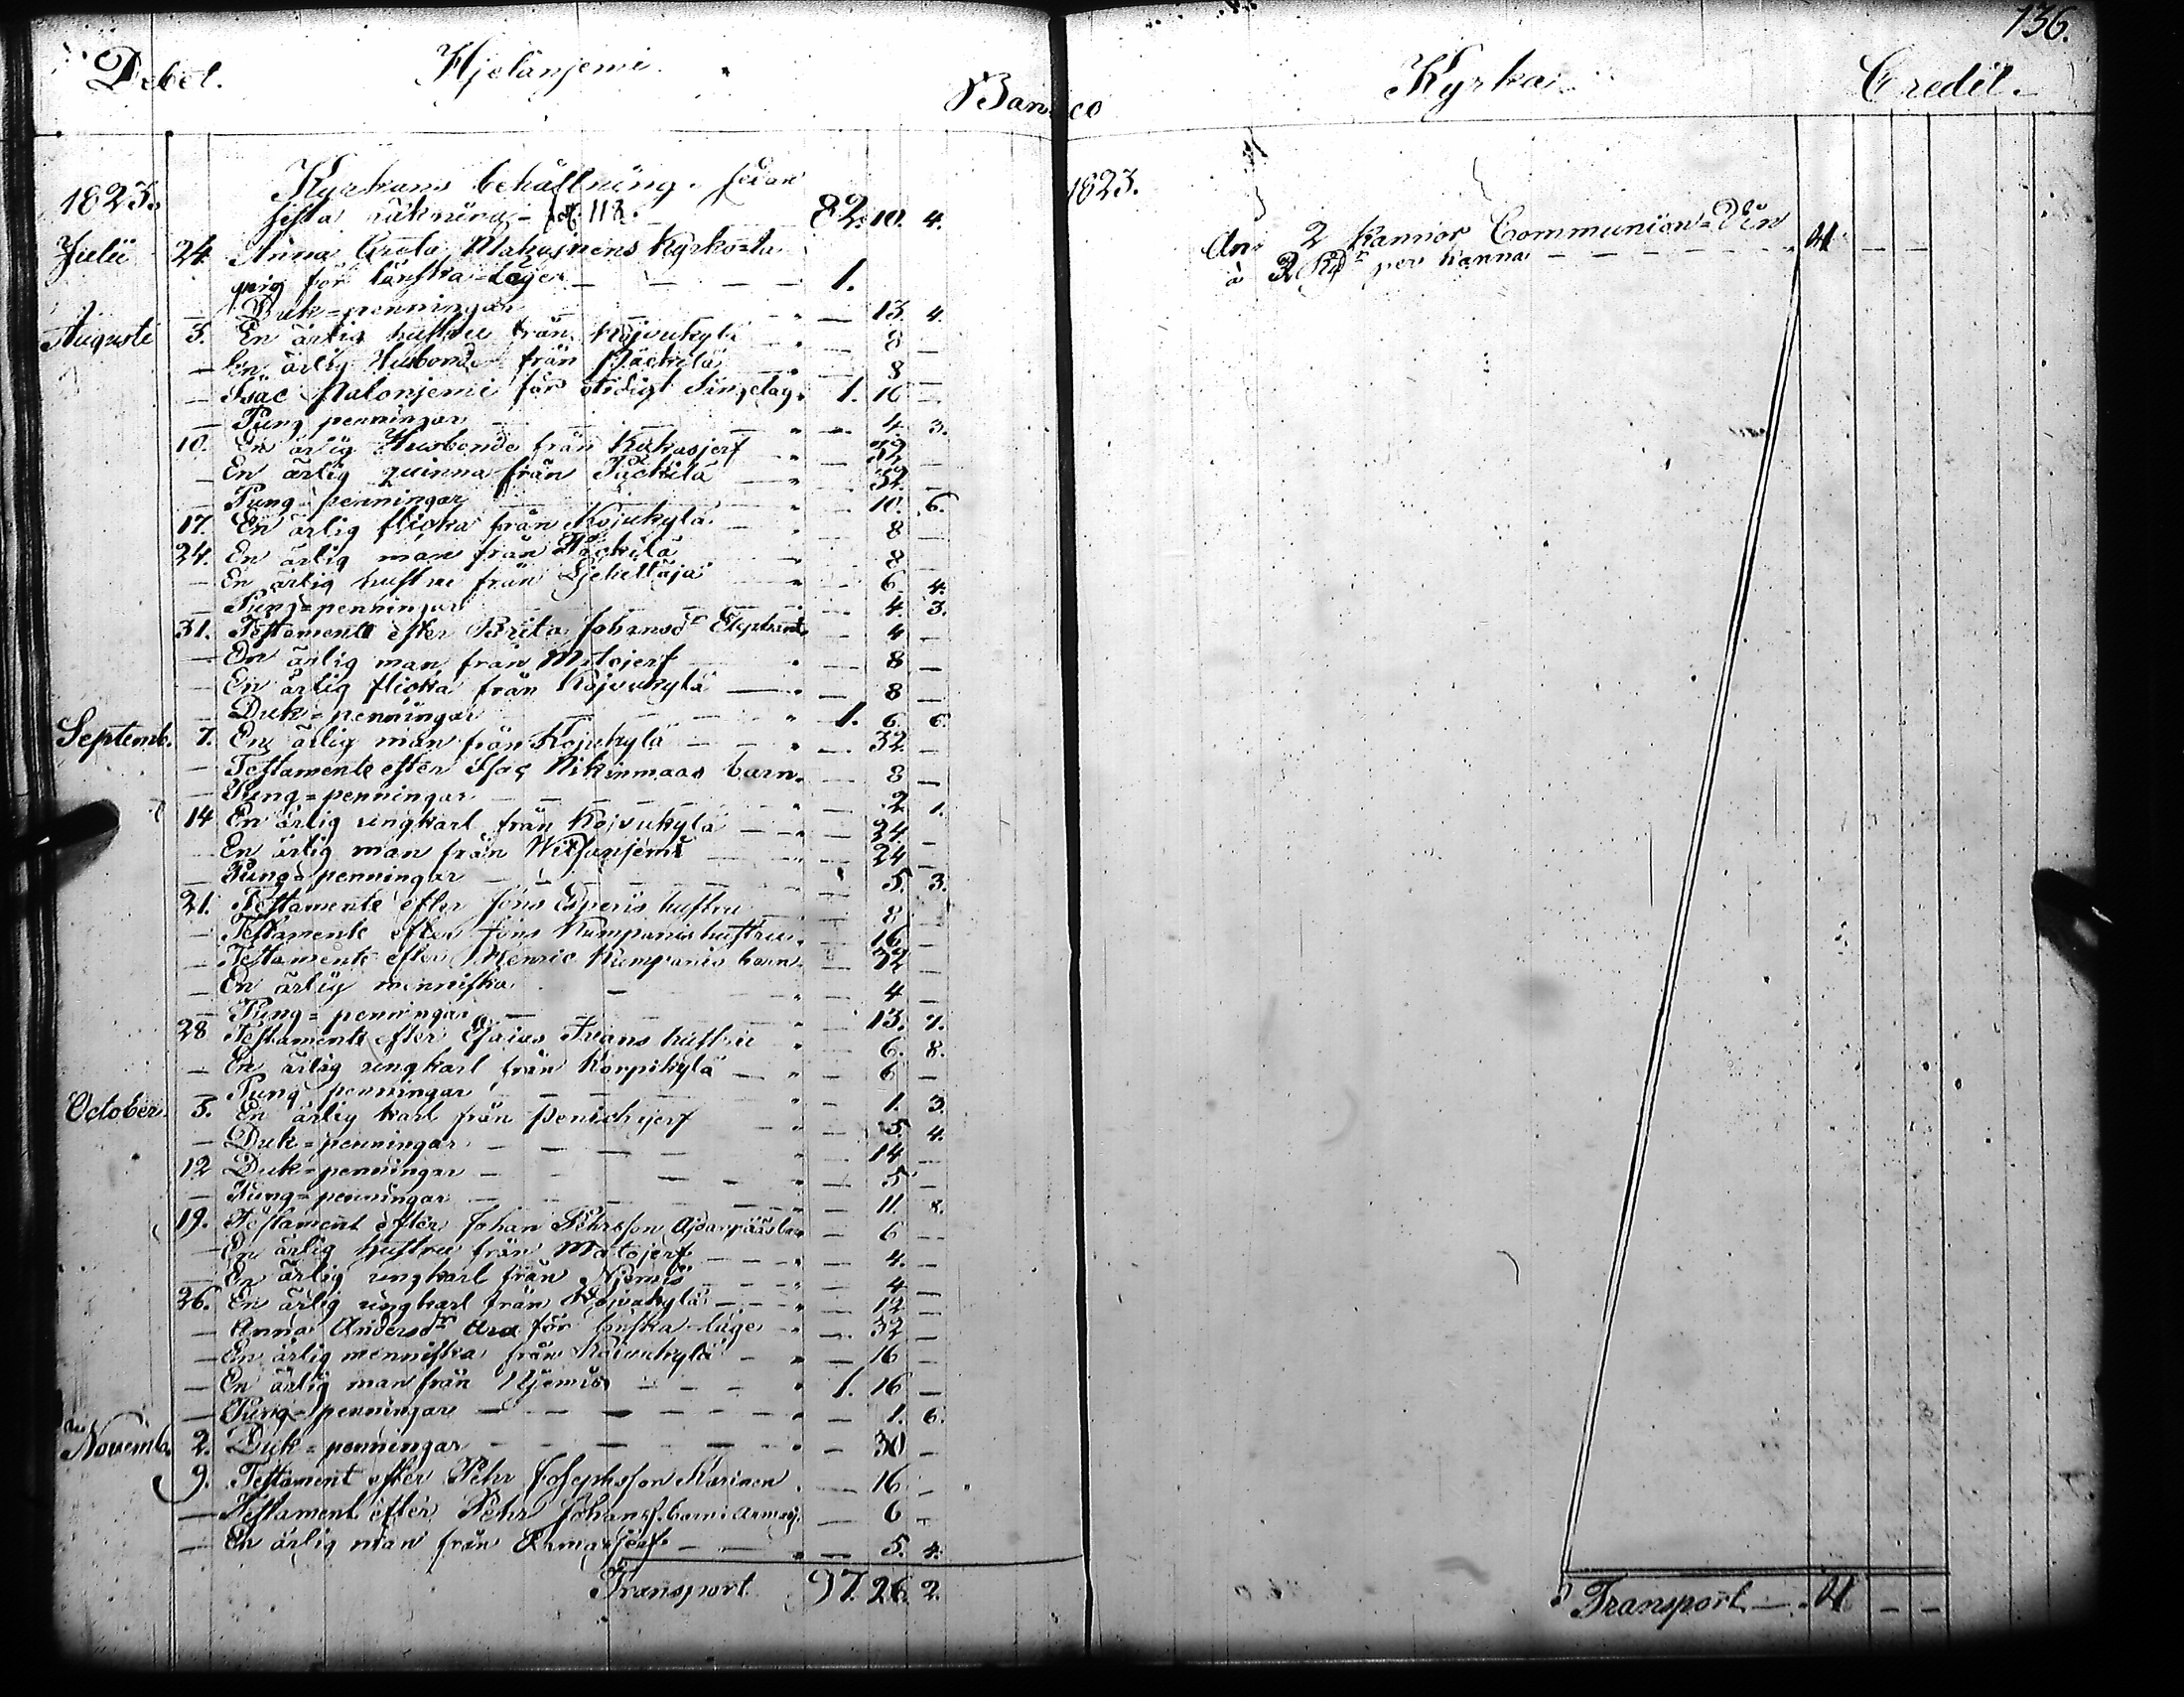 136.
Debet. Hjetanjemi. Banco Kyrka. Credit.
1823. Kyrkans behållning sedan
sista räkning fol. 118. 82. 10. 4.
Julii 24. Anna Greta Kyrkosta
för lönska-läger — — — — 1.
— Duk-penningar — 13. 4.
Augusti 3. En ärlig hustru från Kojvukylä — 8 —
— En ärlig Husbonde från Päckilä — 8 —
— Isac Palonjemi för otidigt Sängelag. 1. 16 —
— Pung penningar — 4. 3.
10. En ärlig Husbonde från Kukasjerf — 32 —
— En ärlig quinna från Päckilä — 32. —
— Pung-penningar — 10. 6.
17. En ärlig flicka från Kojukylä — 8 —
24. En ärlig man från Päckilä — 8 —
— En ärlig hustru från — 6. 4.
— Pung-penningar — 4. 3.
31. Testamente efter Brita Johansdr — 4 —
— En ärlig man från Matojerf — 8 —
— En ärlig flicka från Kojvukylä — 8 —
— Duk-penningar — 1. 6. 6.
Septemb. 7. En ärlig man från Kojukylä — 32 —
— Testamente efter Isac Nikinmaas barn. — 8 —
— Pung-penningar — 2. 1.
14 En ärlig ungkarl från Kojvukylä — 24 —
— En ärlig man från — 24 —
— Pung-penningar — 5. 3.
21. Testamente efter Jöns Esperis hustru — 8
— Testamente efter Jöns Kumpanis hustru. — 16 —
— Testamente efter Henric Kumpanis barn — 32 —
— En ärlig menniska — 4 —
— Pung-penningar — 13. 7.
28 Testamente efter Esaias Frans hustru — 6. 8.
— En ärlig ungkarl från Korpikylä — 6 —
— Pung penningar — 1. 3.
October. 3. En ärlig karl från — 5. 4.
— Duk-penningar — 14 —
12 Duk-penningar — 5 —
— Pung-penningar — 11. 8.
19. Testament efter Johan Pehrsson — 6 —
— En ärlig hustru från Matojerf — 4. —
— En ärlig ungkarl från Njemis — 4 —
26. En ärlig ungkarl från Kojvukylä — 12 —
— Anna Andersdr Ara för lönska-läge — 32 —
— En ärlig menniska från Kojvukylä — 16 —
— En ärlig man från Njemis — 1. 16 —
— Pung-penningar — 1. 6.
Novemb. 2. Duk-penningar — 30 —
9. Testament efter Pehr Josephsson Karinen — 16 —
— Testament efter Pehr Johans. barn — 6 —
— En ärlig man från Armasjerf — 5. 4.
Transport 97. 26. 2.
1823.
An 2 kannor Communion-Vin
à 2 Rdr per kanna — — — — — 4 — —
Transport — 4 — —